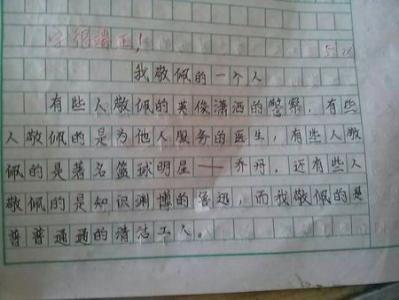 字很端正!
5.22
我敬佩的一个人
有些人敬佩的英俊潇洒的警察,有些
人敬佩的是为他人服务的医生,有些人敬
佩的是著名篮球明星——乔丹,还有些人
敬佩的是知识渊博的鲁迅,而我敬佩的是
普普通通的清洁工人。